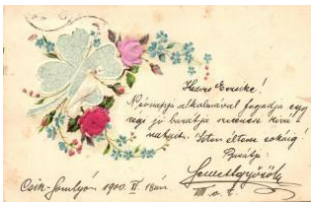 Kedves Emike!
Névnapja alkalmával fogadja egy
régi jó barátja szerencse kivá-
natait. Isten éltesse sokáig!
Barátja
Csik-Somlyó 1900. II 18án.